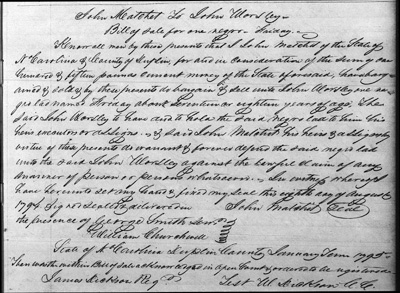 John Matchet To John Worsley
Bill of sale for one negro Friday
Know all men by these presents that I John Matchet of the State of
N Carolina & County of Duplin, for and in Consideration of the sum of one
hundred & fifteen pounds Current money of the State aforesaid, have barg
ained & sold & by these presents do bargain & sell unto John Worsley one ne
gro lad named Friday about Seventeen or eighteen years of age. The
said John Worsley to have and to hold the said negro lad to him his
heirs executors or assigns & I said John Matchet his heirs & assigns by
virtue of these presents do warrant & forever defend the said negro lad
unto the said John Worsley against the lawful claim of any
manner of person or persons whatsoever. In witness whereof I
have hereunto set my hand & fixed my seal this eighth day of August
1794. Signd seald & delivered in John Matchet Seal
the presence of George Smith
William Churchwell
State of N Carolina Duplin County January Term 1795
Then was the within Bill of sale acknowledged in Open Court & ordered to be registered
James Dickson Regr. Test W Dickson C.C.